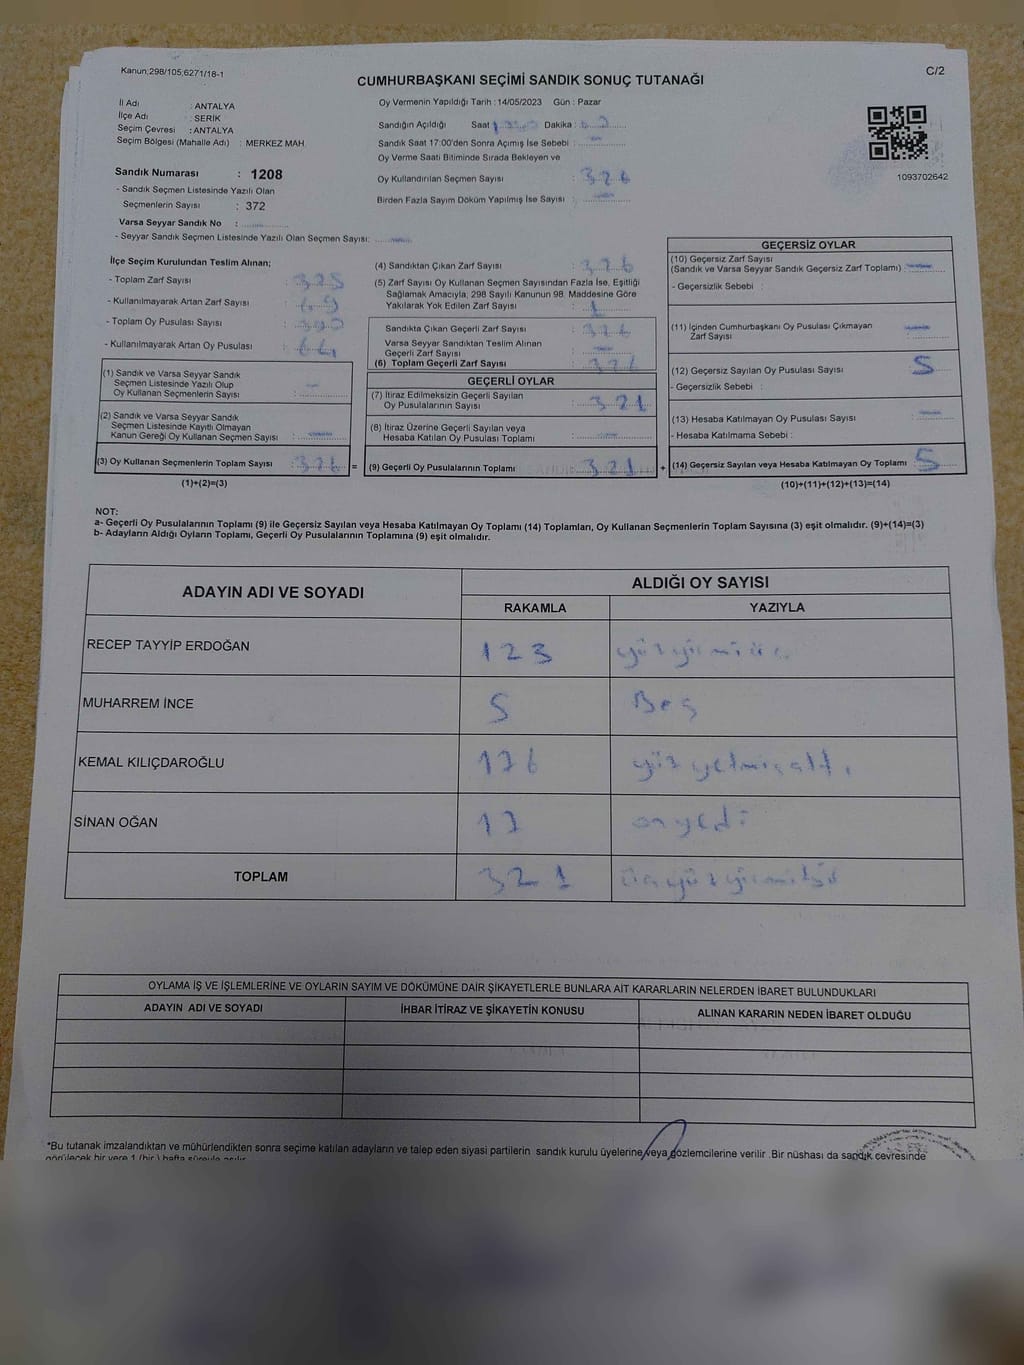 Kanun;298/105;6271/18-1
C/2
CUMHURBAŞKANI SEÇİMİ SANDIK SONUÇ TUTANAĞI
İl Adı : ANTALYA
İlçe Adı : SERİK
Seçim Çevresi : ANTALYA
Seçim Bölgesi (Mahalle Adı) : MERKEZ MAH.
Sandık Numarası : 1208
- Sandık Seçmen Listesinde Yazılı Olan
Seçmenlerin Sayısı : 372
Varsa Seyyar Sandık No :
- Seyyar Sandık Seçmen Listesinde Yazılı Olan Seçmen Sayısı:
Oy Vermenin Yapıldığı Tarih : 14/05/2023 Gün : Pazar
Sandığın Açıldığı Saat Dakika :
Sandık Saat 17:00'den Sonra Açımış İse Sebebi :
Oy Verme Saati Bitiminde Sırada Bekleyen ve
Oy Kullandırılan Seçmen Sayısı : 326
Birden Fazla Sayım Döküm Yapılmış İse Sayısı :
1093702642
İlçe Seçim Kurulundan Teslim Alınan;
- Toplam Zarf Sayısı :
- Kullanılmayarak Artan Zarf Sayısı :
- Toplam Oy Pusulası Sayısı :
- Kullanılmayarak Artan Oy Pusulası :
(1) Sandık ve Varsa Seyyar Sandık
Seçmen Listesinde Yazılı Olup
Oy Kullanan Seçmenlerin Sayısı :
(2) Sandık ve Varsa Seyyar Sandık
Seçmen Listesinde Kayıtlı Olmayan
Kanun Gereği Oy Kullanan Seçmen Sayısı :
(3) Oy Kullanan Seçmenlerin Toplam Sayısı : 326 =
(1)+(2)=(3)
(4) Sandıktan Çıkan Zarf Sayısı : 326
(5) Zarf Sayısı Oy Kullanan Seçmen Sayısından Fazla İse, Eşitliği
Sağlamak Amacıyla, 298 Sayılı Kanunun 98. Maddesine Göre
Yakılarak Yok Edilen Zarf Sayısı :
Sandıkta Çıkan Geçerli Zarf Sayısı : 326
Varsa Seyyar Sandıktan Teslim Alınan
Geçerli Zarf Sayısı :
(6) Toplam Geçerli Zarf Sayısı : 326
GEÇERLİ OYLAR
(7) İtiraz Edilmeksizin Geçerli Sayılan
Oy Pusulalarının Sayısı : 321
(8) İtiraz Üzerine Geçerli Sayılan veya
Hesaba Katılan Oy Pusulası Toplamı :
(9) Geçerli Oy Pusulalarının Toplamı : 321 +
GEÇERSİZ OYLAR
(10) Geçersiz Zarf Sayısı
(Sandık ve Varsa Seyyar Sandık Geçersiz Zarf Toplamı) :
- Geçersizlik Sebebi :
(11) İçinden Cumhurbaşkanı Oy Pusulası Çıkmayan
Zarf Sayısı :
(12) Geçersiz Sayılan Oy Pusulası Sayısı : 5
- Geçersizlik Sebebi :
(13) Hesaba Katılmayan Oy Pusulası Sayısı :
- Hesaba Katılmama Sebebi :
(14) Geçersiz Sayılan veya Hesaba Katılmayan Oy Toplamı : 5
(10)+(11)+(12)+(13)=(14)
NOT:
a- Geçerli Oy Pusulalarının Toplamı (9) ile Geçersiz Sayılan veya Hesaba Katılmayan Oy Toplamı (14) Toplamları, Oy Kullanan Seçmenlerin Toplam Sayısına (3) eşit olmalıdır. (9)+(14)=(3)
b- Adayların Aldığı Oyların Toplamı, Geçerli Oy Pusulalarının Toplamına (9) eşit olmalıdır.
ADAYIN ADI VE SOYADI ALDIĞI OY SAYISI
RAKAMLA YAZIYLA
RECEP TAYYİP ERDOĞAN 123 yüzyirmiüç
MUHARREM İNCE 5 Beş
KEMAL KILIÇDAROĞLU 176 yüzyetmişaltı
SİNAN OĞAN 17 onyedi
TOPLAM 321 üçyüzyirmibir
OYLAMA İŞ VE İŞLEMLERİNE VE OYLARIN SAYIM VE DÖKÜMÜNE DAİR ŞİKAYETLERLE BUNLARA AİT KARARLARIN NELERDEN İBARET BULUNDUKLARI
ADAYIN ADI VE SOYADI İHBAR İTİRAZ VE ŞİKAYETİN KONUSU ALINAN KARARIN NEDEN İBARET OLDUĞU
*Bu tutanak imzalandıktan ve mühürlendikten sonra seçime katılan adayların ve talep eden siyasi partilerin sandık kurulu üyelerine veya gözlemcilerine verilir .Bir nüshası da sandık çevresinde
görülecek bir yere 1 (bir ) hafta süreyle asılır.